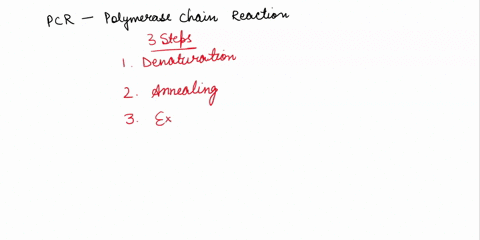 PCR — Polymerase Chain Reaction
3 Steps
1. Denaturation
2. Annealing
3. Ex